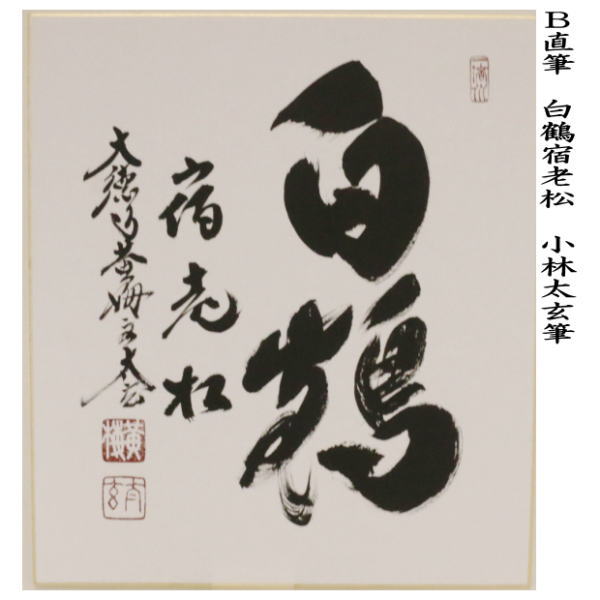 B直筆　白鶴宿老松　小林太玄筆
白鶴
宿老松
大徳 黄梅 太玄
黄梅
太玄